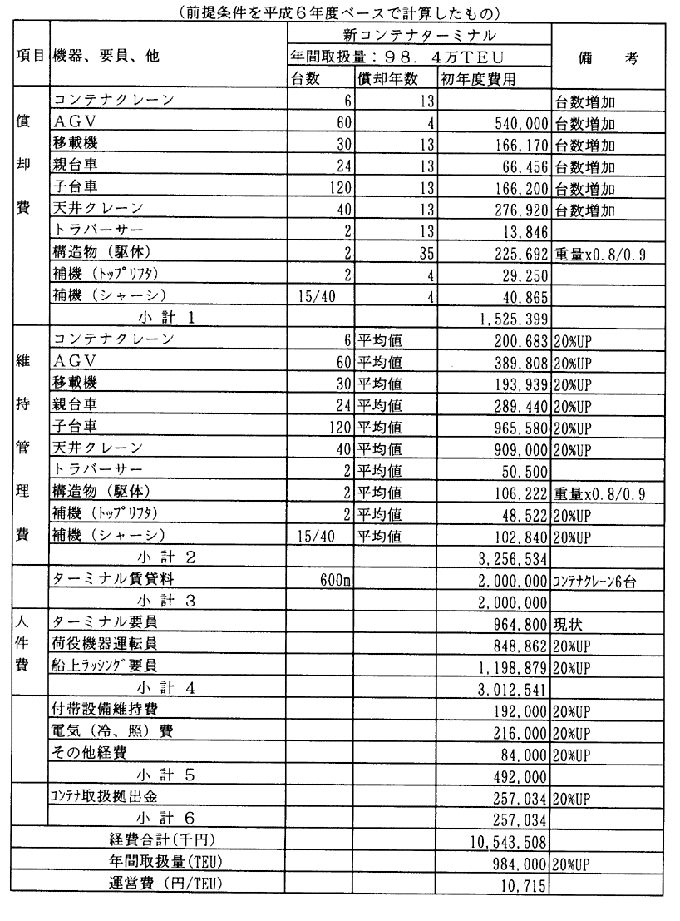 (前提条件を平成6年度ベースで計算したもの)
新コンテナターミナル
項目 機器、要員、他 年間取扱量:98.4万TEU 備 考
台数 償却年数 初年度費用
償却費
コンテナクレーン 6 13 台数増加
AGV 60 4 540,000 台数増加
移載機 30 13 166,170 台数増加
親台車 24 13 66,456 台数増加
子台車 120 13 166,200 台数増加
天井クレーン 40 13 276,920 台数増加
トラバーサー 2 13 13,846
構造物(駆体) 2 35 225,692 重量x0.8/0.9
補機(トップリフタ) 2 4 29,250
補機(シャーシ) 15/40 4 40,865
小 計 1 1,525,399
維持管理費
コンテナクレーン 6 平均値 200,683 20%UP
AGV 60 平均値 389,808 20%UP
移載機 30 平均値 193,939 20%UP
親台車 24 平均値 289,440 20%UP
子台車 120 平均値 965,580 20%UP
天井クレーン 40 平均値 909,000 20%UP
トラバーサー 2 平均値 50,500
構造物(駆体) 2 平均値 106,222 重量x0.8/0.9
補機(トップリフタ) 2 平均値 48,522 20%UP
補機(シャーシ) 15/40 平均値 102,840 20%UP
小 計 2 3,256,534
ターミナル賃貸料 600m 2,000,000 コンテナクレーン6台
小 計 3 2,000,000
人件費
ターミナル要員 964,800 現状
荷役機器運転員 848,862 20%UP
船上ラッシング要員 1,198,879 20%UP
小 計 4 3,012,541
付帯設備維持費 192,000 20%UP
電気(冷、照)費 216,000 20%UP
その他経費 84,000 20%UP
小 計 5 492,000
コンテナ取扱拠出金 257,034 20%UP
小 計 6 257,034
経費合計(千円) 10,543,508
年間取扱量(TEU) 984,000 20%UP
運営費(円/TEU) 10,715